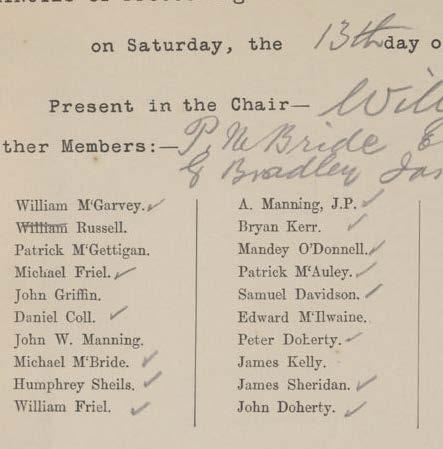 on Saturday, the 13th day o
Present in the Chair— Will
ther Members:— P. McBride
G Bradley Jas
William M‘Garvey. ✓
William Russell.
Patrick M‘Gettigan.
Michael Friel. ✓
John Griffin.
Daniel Coll. ✓
John W. Manning.
Michael M‘Bride. ✓
Humphrey Sheils. ✓
William Friel. ✓
A. Manning, J.P. ✓
Bryan Kerr. ✓
Mandey O’Donnell. ✓
Patrick M‘Auley. ✓
Samuel Davidson. ✓
Edward M‘Ilwaine.
Peter Doherty. ✓
James Kelly.
James Sheridan. ✓
John Doherty. ✓